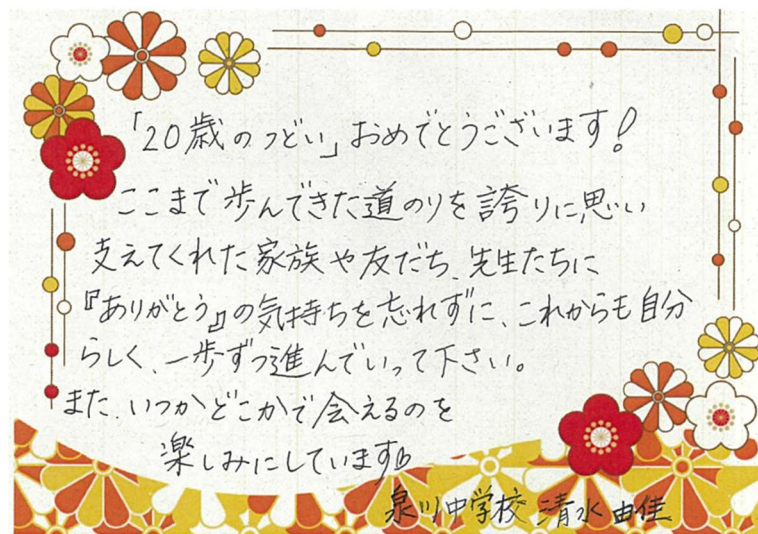 「20歳のつどい」おめでとうございます!
ここまで歩んできた道のりを誇りに思い
支えてくれた家族や友だち、先生たちに
『ありがとう』の気持ちを忘れずに、これからも自分
らしく、一歩ずつ進んでいって下さい。
また、いつかどこかで会えるのを
楽しみにしています
泉川中学校 清水由佳